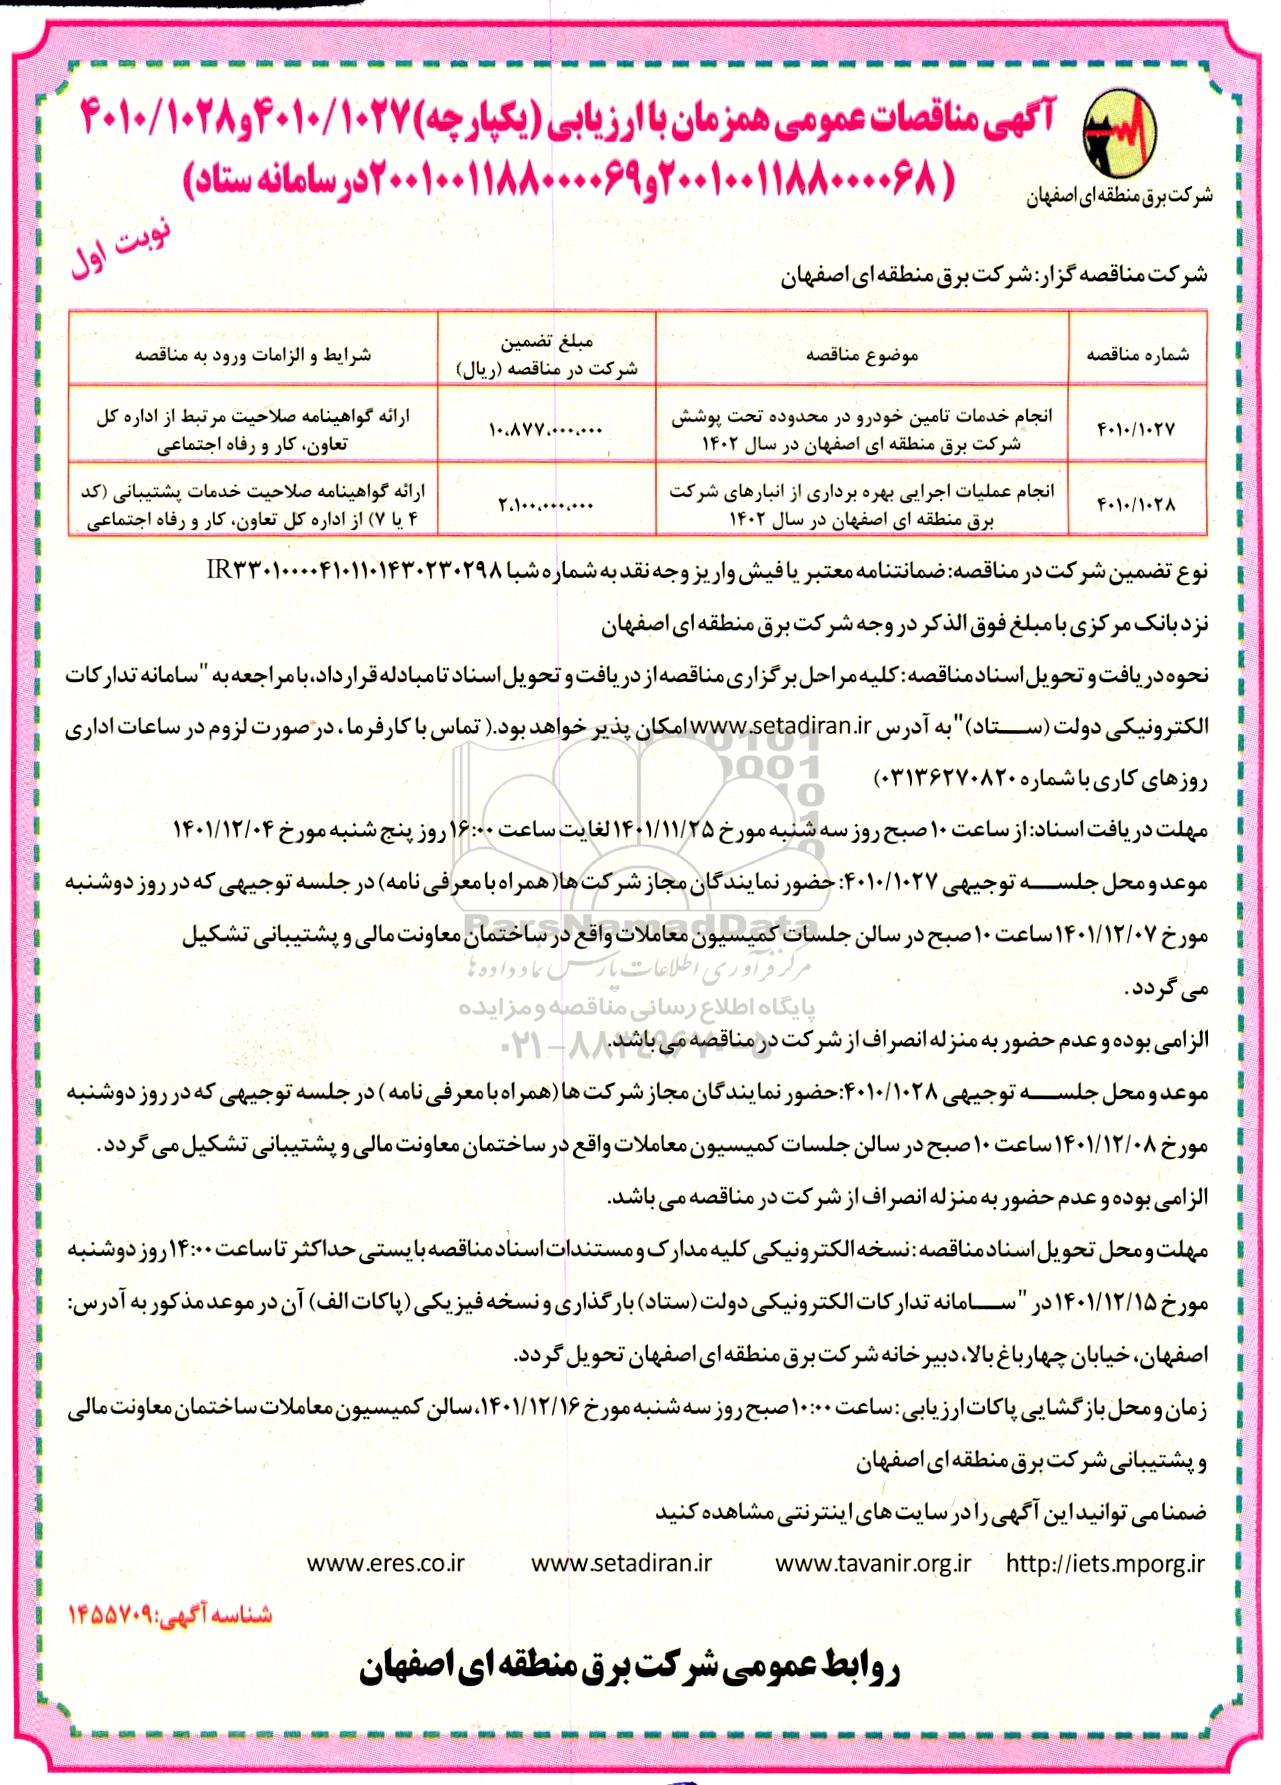 آگهی مناقصات عمومی همزمان با ارزیابی (یکپارچه) ۴۰۱۰/۱۰۲۷ و ۴۰۱۰/۱۰۲۸
(۲۰۰۱۰۰۱۱۸۸۰۰۰۰۶۸ و ۲۰۰۱۰۰۱۱۸۸۰۰۰۰۶۹ در سامانه ستاد)
شرکت برق منطقه ای اصفهان
نوبت اول
شرکت مناقصه گزار: شرکت برق منطقه ای اصفهان
شماره مناقصه
موضوع مناقصه
مبلغ تضمین
شرکت در مناقصه (ریال)
شرایط و الزامات ورود به مناقصه
۴۰۱۰/۱۰۲۷
انجام خدمات تامین خودرو در محدوده تحت پوشش
شرکت برق منطقه ای اصفهان در سال ۱۴۰۲
۱۰،۸۷۷،۰۰۰،۰۰۰
ارائه گواهینامه صلاحیت مرتبط از اداره کل
تعاون، کار و رفاه اجتماعی
۴۰۱۰/۱۰۲۸
انجام عملیات اجرایی بهره برداری از انبارهای شرکت
برق منطقه ای اصفهان در سال ۱۴۰۲
۲،۱۰۰،۰۰۰،۰۰۰
ارائه گواهینامه صلاحیت خدمات پشتیبانی (کد
۴ یا ۷) از اداره کل تعاون، کار و رفاه اجتماعی
نوع تضمین شرکت در مناقصه: ضمانتنامه معتبر یا فیش واریز وجه نقد به شماره شبا IR۳۳۰۱۰۰۰۰۴۱۰۱۱۰۱۴۳۰۲۳۰۲۹۸
نزد بانک مرکزی با مبلغ فوق الذکر در وجه شرکت برق منطقه ای اصفهان
نحوه دریافت و تحویل اسناد مناقصه: کلیه مراحل برگزاری مناقصه از دریافت و تحویل اسناد تا مبادله قرارداد، با مراجعه به "سامانه تدارکات
الکترونیکی دولت (ستاد)" به آدرس www.setadiran.ir امکان پذیر خواهد بود. (تماس با کارفرما، در صورت لزوم در ساعات اداری
روزهای کاری با شماره ۰۳۱۳۶۲۷۰۸۲۰)
مهلت دریافت اسناد: از ساعت ۱۰ صبح روز سه شنبه مورخ ۱۴۰۱/۱۱/۲۵ لغایت ساعت ۱۶:۰۰ روز پنج شنبه مورخ ۱۴۰۱/۱۲/۰۴
موعد و محل جلسه توجیهی ۴۰۱۰/۱۰۲۷: حضور نمایندگان مجاز شرکت ها (همراه با معرفی نامه) در جلسه توجیهی که در روز دوشنبه
مورخ ۱۴۰۱/۱۲/۰۷ ساعت ۱۰ صبح در سالن جلسات کمیسیون معاملات واقع در ساختمان معاونت مالی و پشتیبانی تشکیل
می گردد.
الزامی بوده و عدم حضور به منزله انصراف از شرکت در مناقصه می باشد.
موعد و محل جلسه توجیهی ۴۰۱۰/۱۰۲۸: حضور نمایندگان مجاز شرکت ها (همراه با معرفی نامه) در جلسه توجیهی که در روز دوشنبه
مورخ ۱۴۰۱/۱۲/۰۸ ساعت ۱۰ صبح در سالن جلسات کمیسیون معاملات واقع در ساختمان معاونت مالی و پشتیبانی تشکیل می گردد.
الزامی بوده و عدم حضور به منزله انصراف از شرکت در مناقصه می باشد.
مهلت و محل تحویل اسناد مناقصه: نسخه الکترونیکی کلیه مدارک و مستندات اسناد مناقصه بایستی حداکثر تا ساعت ۱۴:۰۰ روز دوشنبه
مورخ ۱۴۰۱/۱۲/۱۵ در "سامانه تدارکات الکترونیکی دولت (ستاد) بارگذاری و نسخه فیزیکی (پاکات الف) آن در موعد مذکور به آدرس:
اصفهان، خیابان چهارباغ بالا، دبیرخانه شرکت برق منطقه ای اصفهان تحویل گردد.
زمان و محل بازگشایی پاکات ارزیابی: ساعت ۱۰:۰۰ صبح روز سه شنبه مورخ ۱۴۰۱/۱۲/۱۶، سالن کمیسیون معاملات ساختمان معاونت مالی
و پشتیبانی شرکت برق منطقه ای اصفهان
ضمنا می توانید این آگهی را در سایت های اینترنتی مشاهده کنید
http://iets.mporg.ir www.tavanir.org.ir www.setadiran.ir www.eres.co.ir
شناسه آگهی: ۱۴۵۵۷۰۹
روابط عمومی شرکت برق منطقه ای اصفهان
ParsNamadData
مرکز فرآوری اطلاعات پارس نماد داده ها
پایگاه اطلاع رسانی مناقصه و مزایده
۰۲۱-۸۸۳۴۹۶۷۰-۵